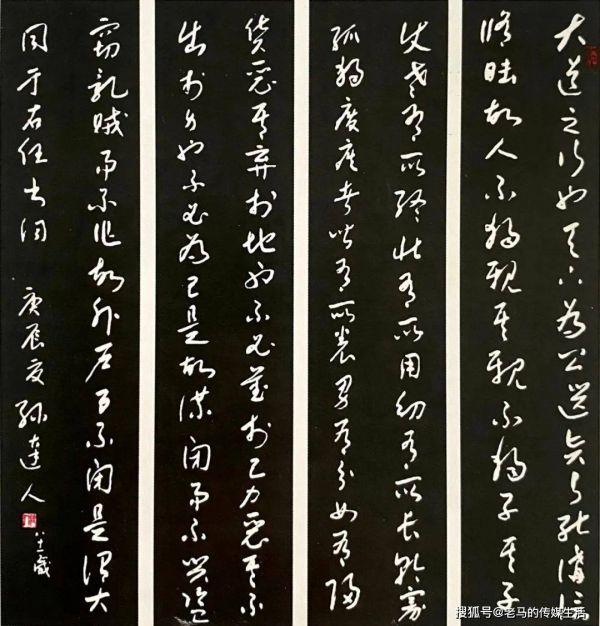 大道之行也天下為公選賢与能講信
脩睦故人不獨親其親不獨子其子
使老有所終壯有所用幼有所長鰥寡
孤獨廢疾者皆有所養男有分女有歸
貨惡其棄於地也不必藏於己力惡其不
出於身也不必為己是故謀閉而不興盜
竊亂賊而不作故外户而不閉是謂大
同于右任書
庚辰夏孫達人
搜狐号@老马的传媒生活